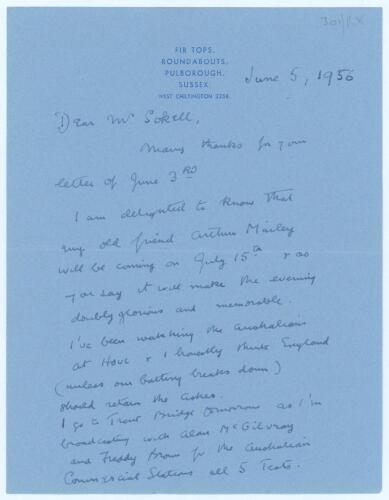 301/RX
FIR TOPS,
ROUNDABOUTS,
PULBOROUGH,
SUSSEX.
WEST CHILTINGTON 2258.
June 5, 1956
Dear Mr Sokell,
Many thanks for your
letter of June 3RD
I am delighted to know that
my old friend Arthur Mailey
will be coming on July 15th & as
you say it will make the evening
doubly glorious and memorable.
I've been watching the Australians
at Hove & I honestly think England
(unless our batting breaks down)
should retain the Ashes.
I go to Trent Bridge tomorrow as I'm
broadcasting with Alan McGilvray
and Freddy Brown for the Australian
Commercial Stations all 5 Tests.